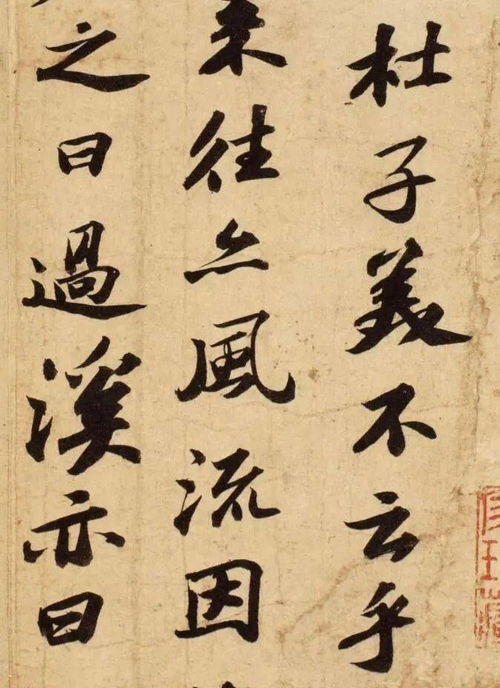 杜子美不云乎
来往亦風流因
之曰過溪亦曰